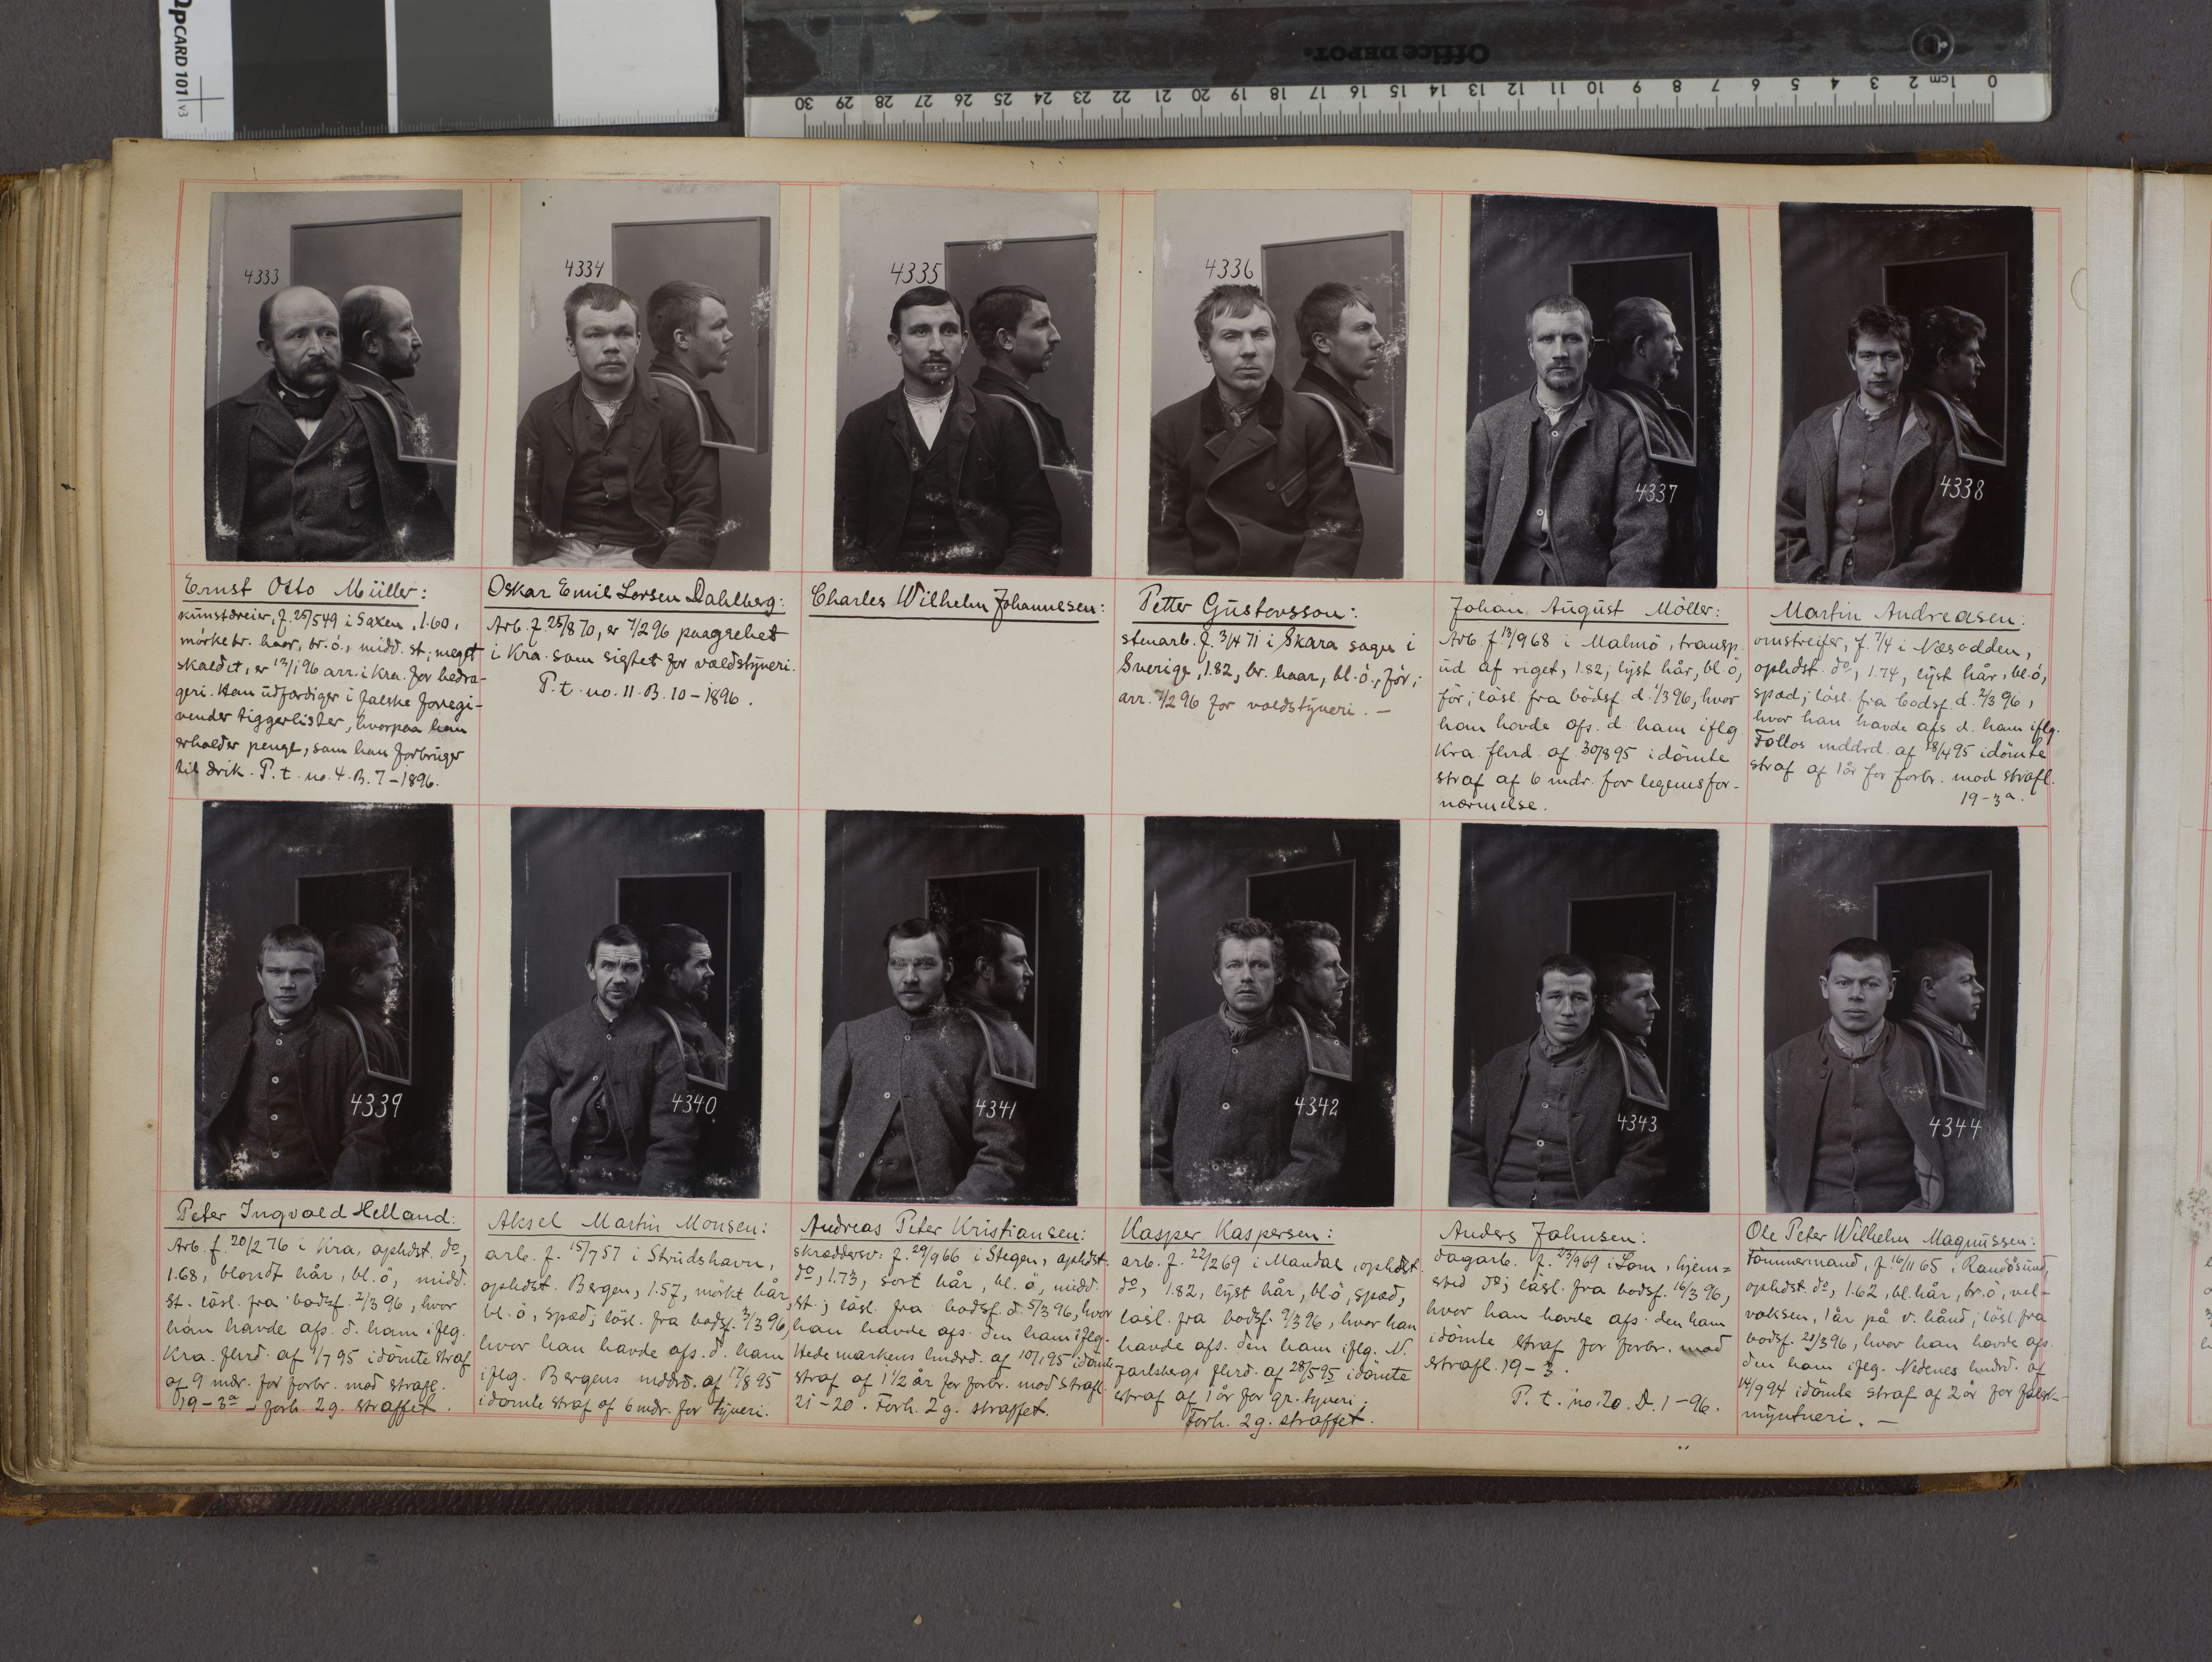 QpCARD 101 v3
Office DEPOT.
30 29 28 27 26 25 24 23 22 21 20 19 18 17 16 15 14 13 12 11 10 9 8 7 6 5 4 3 2 1cm 0
4333
4334
4335
4336
4337
4338
Ernst Otto Müller:
kunstdreier, f. 25/5 49 i Saxen, 1.60,
mörkebr. haar, br. ö., midd. st; meget
skaldet, er 12/1 96 arr. i Kra. for bedra-
geri. Han udfærdiger i falske foregi-
vender tiggerlister, hvorpaa han
erholder penge, som han forbruger
til drik. P. t. no. 4. B. 7 – 1896.
Oskar Emil Larsen Dahlberg:
Arb. f. 25/8 70, er 7/2 96 paagrebet
i Kra. som sigtet for voldstyveri.
P. t. no. 11. B. 10 – 1896.
Charles Wilhelm Johannesen:
Petter Gustavsson:
stenarb. f. 3/4 71 i Skara sogn i
Sverige, 1.82, br. haar, bl. ö., för;
arr. 7/2 96 for voldstyveri. —
Johan August Möller:
Arb. f 13/9 68 i Malmö, transp.
ud af riget, 1.82, lyst hår, bl. ö,
för; lösl. fra bodsf. d. 1/3 96, hvor
han havde afs. d. ham iflg.
Kra. flrd. af 30/8 95 idömte
straf af 6 mdr. for legemsfor-
nærmelse.
Martin Andreasen:
omstreifer, f. 7/4 i Næsodden,
opholdst. do, 1.74, lyst hår, bl. ö,
spæd; lösl. fra bodsf. d. 2/3 96,
hvor han havde afs d. ham iflg.
Follos mddrd. af 18/4 95 idömte
straf af 1 år for forbr. mod strafl.
19 – 3a.
4339
4340
4341
4342
4343
4344
Peter Ingvald Helland:
Arb. f. 20/2 76 i Kra, opholdst. do,
1.68, blondt hår, bl. ö, midd.
st. lösl. fra bodsf. 2/3 96, hvor
han havde afs. d. ham iflg.
Kra. flrd. af 1/7 95 idömte straf
af 9 mdr. for forbr. mod strafl.
19 – 3a – forh. 2 g. straffet.
Aksel Martin Monsen:
arb. f. 15/7 57 i Strudshavn,
opholdst. Bergen, 1.57, mörkt hår,
bl. ö, spæd; lösl. fra bodsf. 3/3 96,
hvor han havde afs. d. ham
iflg. Bergens mddrd. af 17/8 95
idömte straf af 6 mdr. for tyveri.
Andreas Peter Kristiansen:
skræddersv. f. 29/9 66 i Stegen, opholdst.
do, 1.73, sort hår, bl. ö, midd.
st.; lösl. fra bodsf. d. 5/3 96, hvor
han havde afs. den ham iflg.
Hedemarkens lmdrd. af 10/1 95 idömte
straf af 1 1/2 år for forbr. mod strafl.
21 – 20. Forh. 2 g. straffet.
Kasper Kaspersen:
arb. f. 22/2 69 i Mandal, opholdst.
do, 1.82, lyst hår, bl. ö, spæd,
lösl. fra bodsf. 9/3 96, hvor han
havde afs. den ham iflg. N.
Jarlsbergs flrd. af 28/5 95 idömte
straf af 1 år for gr. tyveri;
Forh. 2 g. straffet.
Anders Jahnsen:
dagarb. f. 23/9 69 i Lom, hjem=
sted do; lösl. fra bodsf. 16/3 96,
hvor han havde afs. den ham
idömte straf for forbr. mod
strafl. 19 – 3.
P. t. no. 20. D. 1 – 96.
Ole Peter Wilhelm Magnussen:
Tömmermand, f. 16/11 65 i Randösund,
opholdst. do, 1.62, bl. hår, br. ö, vel-
voksen, 1 år på v. hånd; lösl. fra
bodsf. 21/3 96, hvor han havde afs.
den ham iflg. Nedenes lmdrd. af
14/9 94 idömte straf af 2 år for falsk-
myntneri. —